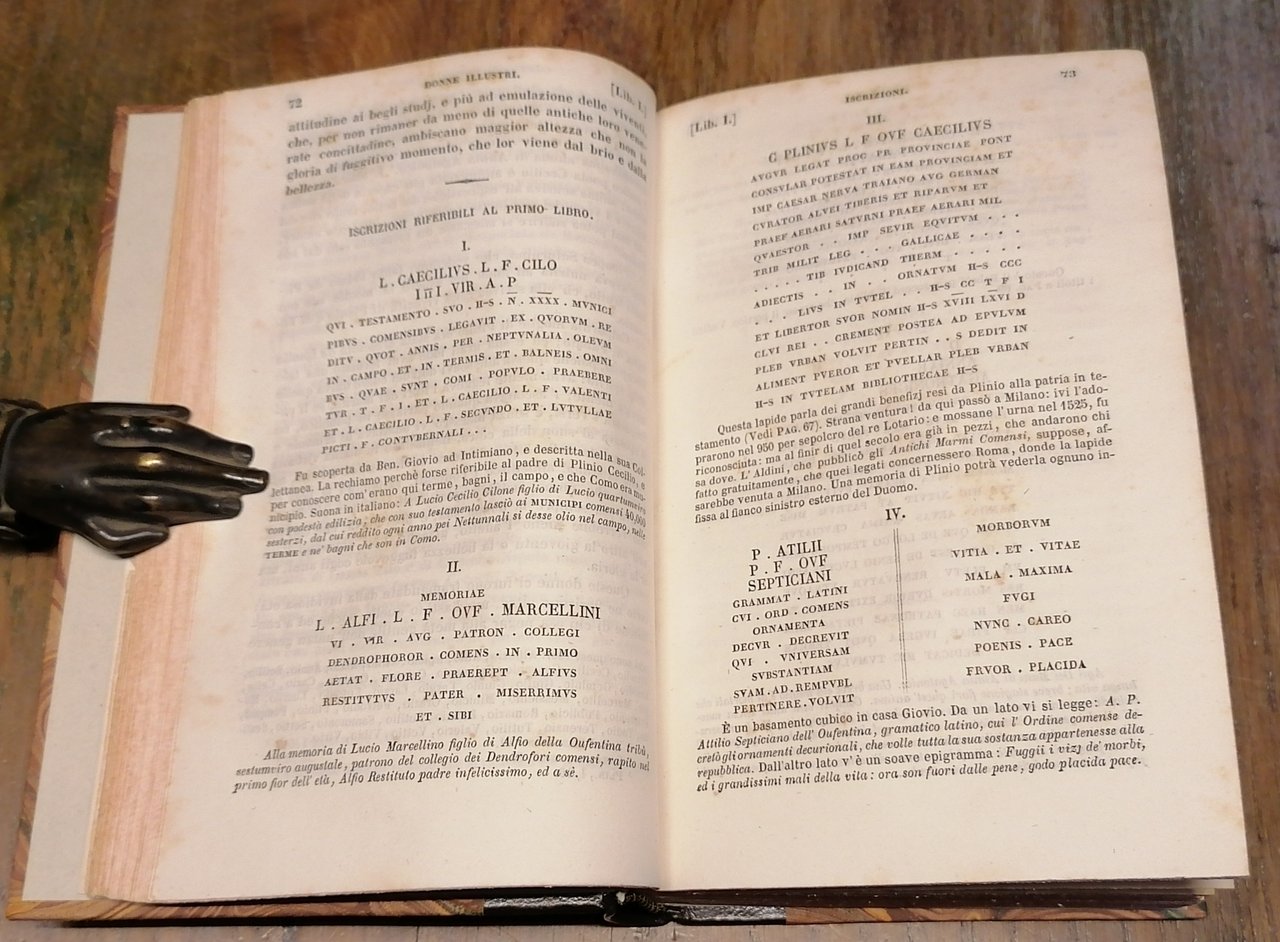 72
DONNE ILLUSTRI.
[Lib. I.]
attitudine ai begli studj, e più ad emulazione delle viventi,
che, per non rimaner da meno di quelle antiche loro vene-
rate concittadine, ambiscano maggior altezza che non la
gloria di fuggitivo momento, che lor viene dal brio e dalla
bellezza.
ISCRIZIONI RIFERIBILI AL PRIMO LIBRO.
I.
L . CAECILIVS . L . F . CILO
IIII . VIR . A . P
QVI . TESTAMENTO . SVO . H-S . N . XXXX . MVNICI
PIBVS . COMENSIBVS . LEGAVIT . EX . QVORVM . RE
DITV . QVOT . ANNIS . PER . NEPTVNALIA . OLEVM
IN . CAMPO . ET . IN . TERMIS . ET . BALNEIS . OMNI
BVS . QVAE . SVNT . COMI . POPVLO . PRAEBERE
TVR . T . F . I . ET . L . CAECILIO . L . F . VALENTI
ET . L . CAECILIO . L . F . SECVNDO . ET . LVTVLLAE
PICTI . F . CONTVBERNALI . . .
Fu scoperta da Ben. Giovio ad Intimiano, e descritta nella sua Col-
lettanea. La rechiamo perchè forse riferibile al padre di Plinio Cecilio, e
per conoscere com'erano qui terme, bagni, il campo, e che Como era mu-
nicipio. Suona in italiano: A Lucio Cecilio Cilone figlio di Lucio quartumviro
con podestà edilizia, che con suo testamento lasciò ai MUNICIPI comensi 40,000
sesterzi, dal cui reddito ogni anno pei Nettunnali si desse olio nel campo, nelle
TERME e ne' bagni che son in Como.
II.
MEMORIAE
L . ALFI . L . F . OVF . MARCELLINI
VI . VIR . AVG . PATRON . COLLEGI
DENDROPHOROR . COMENS . IN . PRIMO
AETAT . FLORE . PRAEREPT . ALFIVS
RESTITVTVS . PATER . MISERRIMVS
ET . SIBI
Alla memoria di Lucio Marcellino figlio di Alfio della Oufentina tribù,
sestumviro augustale, patrono del collegio dei Dendrofori comensi, rapito nel
primo fior dell'età, Alfio Restituto padre infelicissimo, ed a sè.
[Lib. I.]
ISCRIZIONI.
73
III.
C PLINIVS L F OVF CAECILIVS
AVGVR LEGAT PROC PR PROVINCIAE PONT
CONSVLAR POTESTAT IN EAM PROVINCIAM ET
IMP CAESAR NERVA TRAIANO AVG GERMAN
CVRATOR ALVEI TIBERIS ET RIPARVM ET
PRAEF AERARI SATVRNI PRAEF AERARI MIL
QVAESTOR . . IMP SEVIR EQVITVM . . .
TRIB MILIT LEG . . . GALLICAE . . . .
. . . . . TIB IVDICAND THERM . . . . .
ADIECTIS . . IN . . ORNATVM H-S CCC
. . . LIVS IN TVTEL . . H-S CC T F I
ET LIBERTOR SVOR NOMIN H-S XVIII LXVI D
CLVI REI . . CREMENT POSTEA AD EPVLVM
PLEB VRBAN VOLVIT PERTIN . . S DEDIT IN
ALIMENT PVEROR ET PVELLAR PLEB VRBAN
H-S IN TVTELAM BIBLIOTHECAE H-S
Questa lapide parla dei grandi benefizj resi da Plinio alla patria in te-
stamento (Vedi PAG. 67). Strana ventura! da qui passò a Milano: ivi l'ado-
prarono nel 950 per sepolcro del re Lotario: e mossane l'urna nel 1525, fu
riconosciuta: ma al finir di quel secolo era già in pezzi, che andarono chi
sa dove. L'Aldini, che pubblicò gli Antichi Marmi Comensi, suppose, af-
fatto gratuitamente, che quei legati concernessero Roma, donde la lapide
sarebbe venuta a Milano. Una memoria di Plinio potrà vederla ognuno in-
fissa al fianco sinistro esterno del Duomo.
IV.
P . ATILII
P . F . OVF
SEPTICIANI
GRAMMAT . LATINI
CVI . ORD . COMENS
ORNAMENTA
DECVR . DECREVIT
QVI . VNIVERSAM
SVBSTANTIAM
SVAM . AD . REMPVBL
PERTINERE . VOLVIT
MORBORVM
VITIA . ET . VITAE
MALA . MAXIMA
FVGI
NVNC . CAREO
POENIS . PACE
FRVOR . PLACIDA
È un basamento cubico in casa Giovio. Da un lato vi si legge: A. P.
Attilio Septiciano dell'Oufentina, gramatico latino, cui l'Ordine comense de-
cretò gli ornamenti decurionali, che volle tutta la sua sostanza appartenesse alla
repubblica. Dall'altro lato v'è un soave epigramma: Fuggii i vizj de' morbi,
ed i grandissimi mali della vita: ora son fuori dalle pene, godo placida pace.